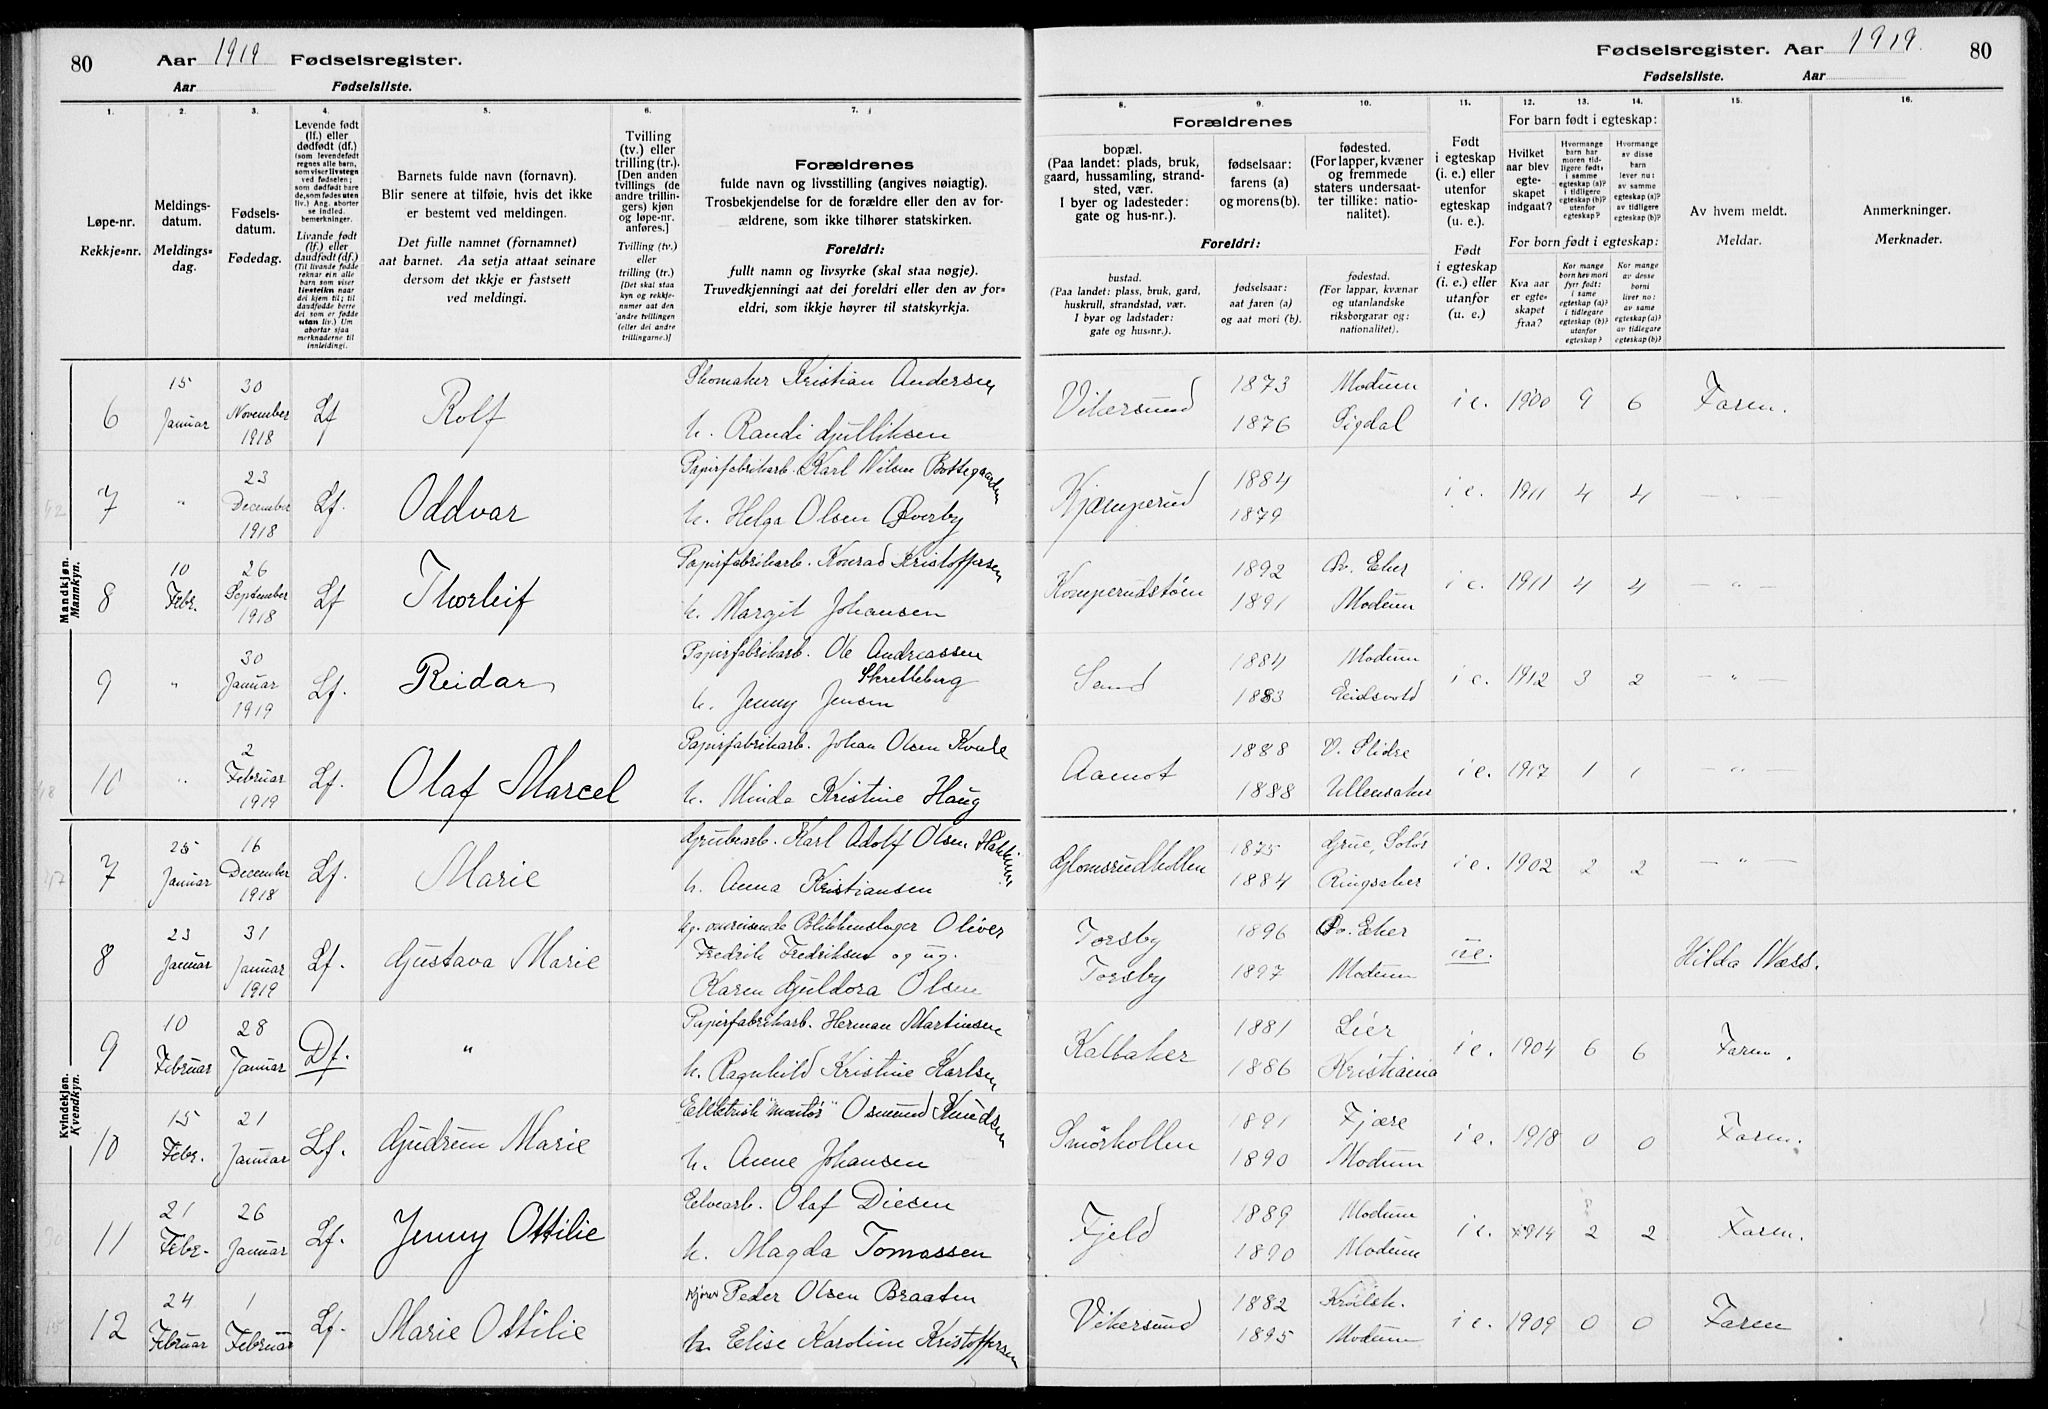 80 Aar 1919 Fødselsregister.
Aar Fødselsliste.
Fødselsregister. Aar 1919. 80
Fødselsliste. Aar
1. 2. 3. 4. 5. 6. 7.
Løpe-nr.
Rekkje=nr.
Meldings-
datum.
Meldings=
dag.
Fødsels-
datum.
Fødedag.
Levende født
(lf.) eller
dødfødt (df.)
(som levendefødt
regnes alle barn,
som viser livstegn
ved fødselen;
som dødfødt bare
de, som fødes uten
liv.) Ang. aborter
se indled.
bemerkninger.
Livande født
(lf.) eller
daudfødt (df.)
(Til livande fødde
reknar ein alle
barn som viser
livsteikn naar
dei kjem til; til
daudfødde berre
dei som er fødde
utan liv.) Um
abortar sjaa
merknaderne til
innleidingi.
Barnets fulde navn (fornavn).
Blir senere at tilføie, hvis det ikke
er bestemt ved meldingen.
Det fulle namnet (fornamnet)
aat barnet. Aa setja attaat seinare
dersom det ikkje er fastsett
ved meldingi.
Tvilling
(tv.) eller
trilling (tr.).
[Den anden
tvillings (de
andre trillin-
gers) kjøn
og løpe-nr.
anføres.]
Tvilling (tv.)
eller
trilling (tr.)
[Det skal staa
kyn og rekkje-
nummer aat den
andre tvillingen
(eller dei andre
trillingarne.)]
Forældrenes
fulde navn og livsstilling (angives nøiagtig).
Trosbekjendelse for de forældre eller den av for-
ældrene, som ikke tilhører statskirken.
Foreldri:
fullt namn og livsyrke (skal staa nøgje).
Truvedkjenningi aat dei foreldri eller den av for=
eldri, som ikkje høyrer til statskyrkja.
8. 9. 10. 11. 12. 13. 14. 15. 16.
Forældrenes
bopæl.
(Paa landet: plads, bruk,
gaard, hussamling, strand-
sted, vær.
I byer og ladesteder:
gate og hus-nr.).
fødselsaar:
farens (a)
og morens(b).
fødested.
(For lapper, kvæner
og fremmede
staters undersaat-
ter tillike: natio-
nalitet).
Foreldri:
bustad.
(Paa landet: plass, bruk, gard,
huskrull, strandstad, vær.
I byar og ladstader:
gate og hus=nr.).
fødselsaar:
aat faren (a)
og aat mori (b).
fødestad.
(For lappar, kvænar
og utanlandske
riksborgarar og:
nationalitet).
Født
i egteskap
(i. e.) eller
utenfor
egteskap
(u. e.).
Født
i egteskap
(i. e.) eller
utanfor
(u. e.)
For barn født i egteskap:
Hvilket
aar blev
egte-
skapet
indgaat?
Hvormange
barn har
moren tid-
ligere født,
i samme
egteskap (a)?
i tidligere
egteskap (b)?
utenfor
egteskap?
Hvormange
av disse
barn
lever nu:
av samme
egteskap (a)?
av tidligere
egteskap (b)?
For born født i egteskap:
Kva aar
er egte-
skapet
fraa?
Kor mange
born hev mori
fyrr født:
i same
egteskap (a)?
i tidlegare
egteskap (b)?
utanfor
egteskap?
Kor mange
av desse
borni
liver no:
av same
egteskap (a)?
av tidlegare
egteskap (b)?
Av hvem meldt.
Meldar.
Anmerkninger.
Merknader.
Mandkjøn.
Mannkyn.
6 15 Januar 30 November 1918 Lf Rolf Skomaker Kristian Andersen h. Randi Gulliksen Vikersund 1873 1876 Modum Sigdal i e. 1900 9 6 Faren.
7 " 23 December 1918 Lf. Oddvar Papirfabrikarb. Karl Nilsen Bottegaarden h. Helga Olsen Øverby Kjæmperud 1884 1879 i e. 1911 4 4 — " —
8 10 Febr. 26 September 1918 Lf Thorleif Papirfabrikarb. Konrad Kristoffersen h. Margit Johansen Komperudstøen 1892 1891 Øv. Eker Modum i e. 1911 4 4 — " —
9 " 30 Januar 1919 Lf. Reidar Papirfabrikarb. Ole Andreassen Skretteberg h. Jenny Jensen Sand 1884 1883 Modum Eidsvold i e. 1912 3 2 — " —
10 " 2 Februar 1919 Lf. Olaf Marcel Papirfabrikarb. Johan Olsen Kvale h. Minda Kristine Haug Aamot 1888 1888 V. Slidre Ullensaker i e. 1917 1 1 — " —
Kvindekjøn.
Kvendkyn.
7 25 Januar 16 December 1918 Lf. Marie Grubearb. Karl Adolf Olsen h. Anna Kristiansen Glomsrudkollen 1875 1884 Grue, Solør Ringsaker i e. 1902 2 2 — " —
8 23 Januar 31 Januar 1919 Lf. Gustava Marie Ug. omreisende Blikkenslager Oliver Fredrik Fredriksen og ug. Karen Guldora Olsen Torsby Torsby 1896 1897 Øv. Eker Modum ue. Hilda Næss.
9 10 Februar 28 Januar Df. " Papirfabrikarb. Herman Martinsen h. Ragnhild Kristine Karlsen Kalbaker 1881 1886 Lier Kristiania i e. 1904 6 6 Faren.
10 15 Febr. 21 Januar Lf. Gudrun Marie Elektrisk "montør" Osmund Knudsen h. Anne Johansen Smørkollen 1891 1890 Fjære Modum i e. 1918 0 0 Faren.
11 21 Febr. 26 Januar Lf. Jenny Ottilie Elvearb. Olaf Diesen h. Magda Tomassen Fjeld 1889 1890 Modum Modum i e. 1914 2 2 Faren.
12 24 Februar 1 Februar Lf. Marie Ottilie Peder Olsen Braaten h. Elise Karoline Kristoffersen Vikersund 1882 1895 Krødsh. Modum i e. 1909 0 0 Faren